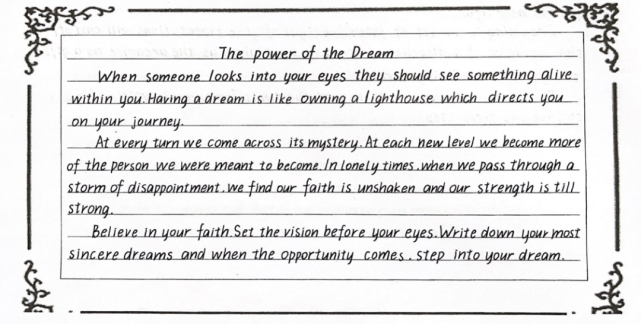 The power of the Dream
When someone looks into your eyes they should see something alive
within you. Having a dream is like owning a lighthouse which directs you
on your journey.
At every turn we come across its mystery. At each new level we become more
of the person we were meant to become. In lonely times. when we pass through a
storm of disappointment. we find our faith is unshaken and our strength is till
strong.
Believe in your faith. Set the vision before your eyes. Write down your most
sincere dreams and when the opportunity comes. step into your dream.